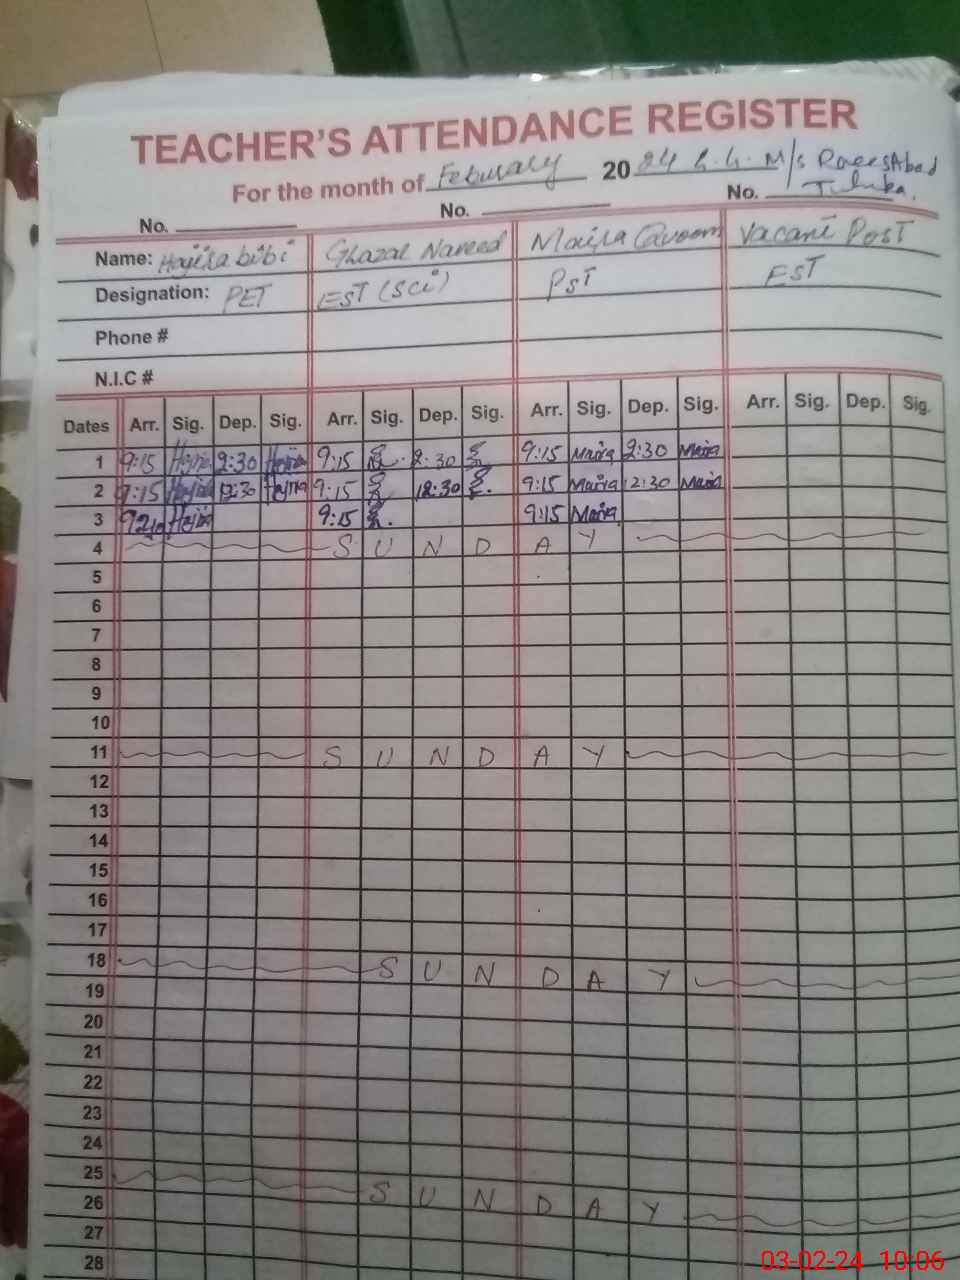 TEACHER'S ATTENDANCE REGISTER
For the month of Feburary 2024 G.G.M/s
No. No. No.
Name: Hajira bibi Ghazal Naveed Maira Qayoom Vacant Post
Designation: PET EST (Sci) PST EST
Phone #
N.I.C #
Dates Arr. Sig. Dep. Sig. Arr. Sig. Dep. Sig. Arr. Sig. Dep. Sig. Arr. Sig. Dep. Sig.
1 9:15 Hajira 2:30 Hajira 9:15 2:30 9:15 Maira 2:30 Maira
2 9:15 Hajira 12:30 Hajira 9:15 12:30 9:15 Maira 12:30 Maira
3 Hajira 9:15 9:15 Maira
4 SUNDAY
5
6
7
8
9
10
11 SUNDAY
12
13
14
15
16
17
18 SUNDAY
19
20
21
22
23
24
25 SUNDAY
26
27
28
03-02-24 10:06